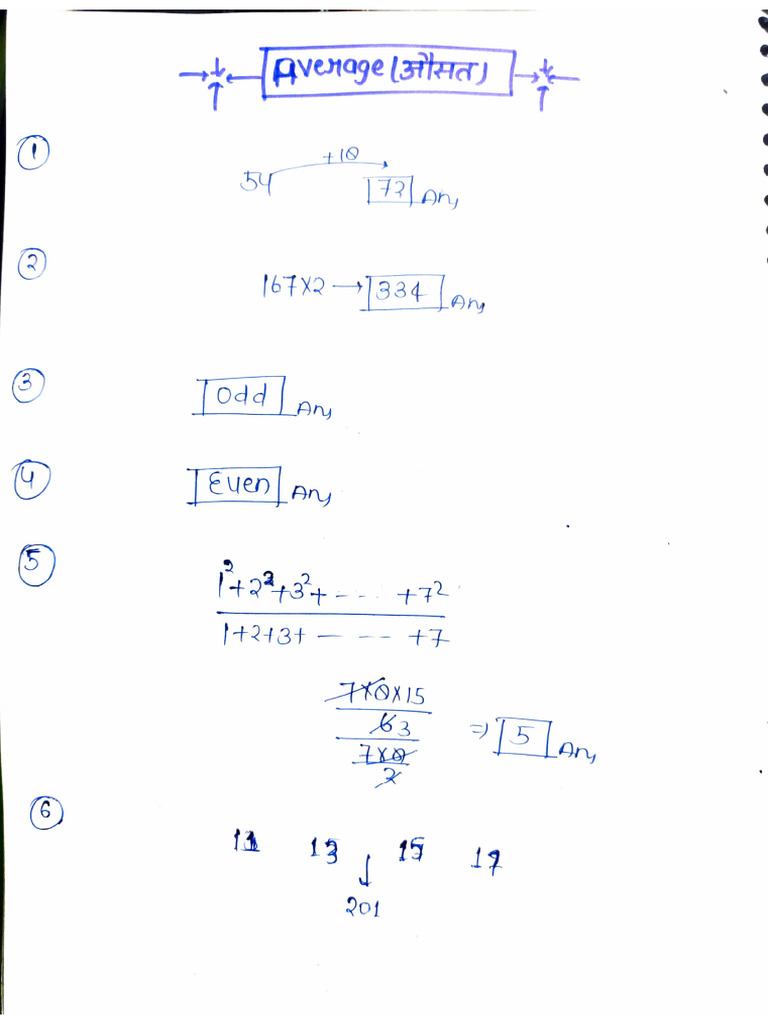 Average (औसत)
1
54 +18 72 Ans
2
167×2 → 334 Ans
3
Odd Ans
4
Even Ans
5
1²+2²+3²+ - - - - +7²
1+2+3+ - - - - +7
7×8×15
6 3
7×8
2
⇒ 5 Ans
6
11 13 15 17
201